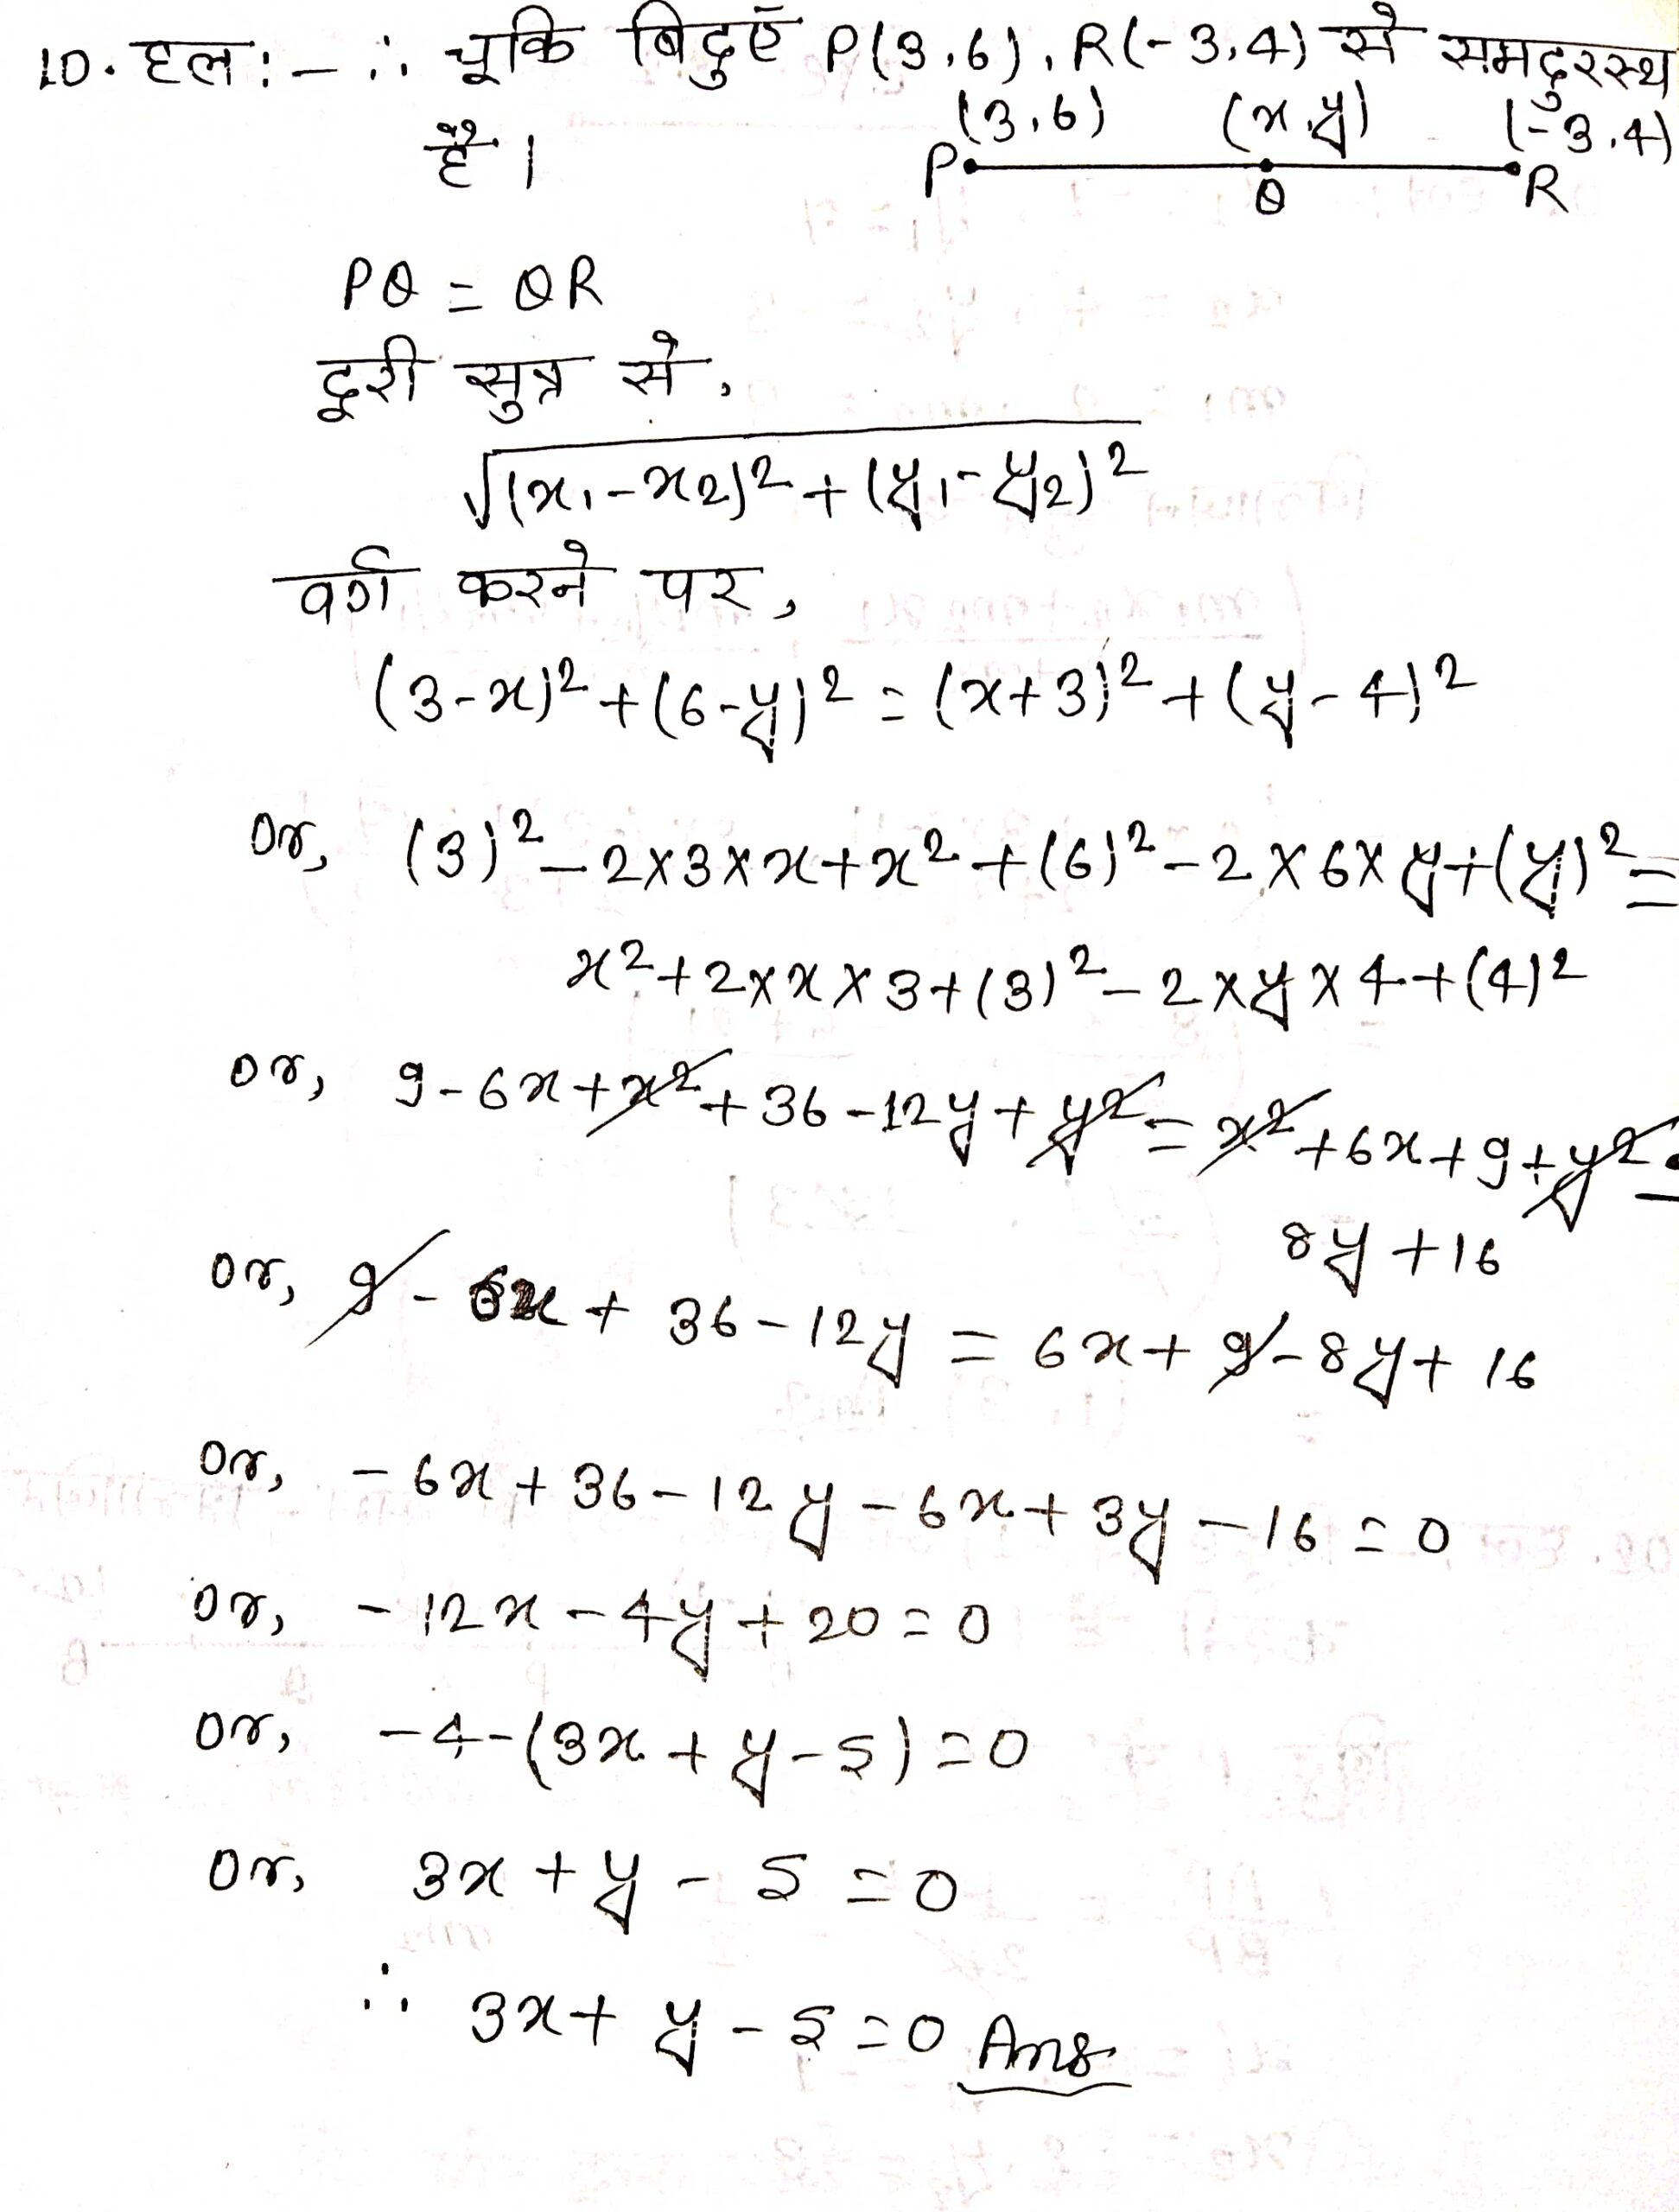 10. हल:- ∴ चूकि बिदुएँ P(3,6), R(-3,4) से समदुरस्थ
है।
(3,6) (x,y) (-3,4)
P Q R
PQ = QR
दूरी सुत्र से,
√(x₁-x₂)² + (y₁-y₂)²
वर्ग करने पर,
(3-x)² + (6-y)² = (x+3)² + (y-4)²
Or, (3)² - 2×3×x + x² + (6)² - 2×6×y + (y)² =
x² + 2×x×3 + (3)² - 2×y×4 + (4)²
or, 9 - 6x + x² + 36 - 12y + y² = x² + 6x + 9 + y² -
8y + 16
or, 9 - 6x + 36 - 12y = 6x + 9 - 8y + 16
Or, - 6x + 36 - 12y - 6x + 3y - 16 = 0
or, - 12x - 4y + 20 = 0
or, -4-(3x + y - 5) = 0
or, 3x + y - 5 = 0
∴ 3x + y - 5 = 0 Ans